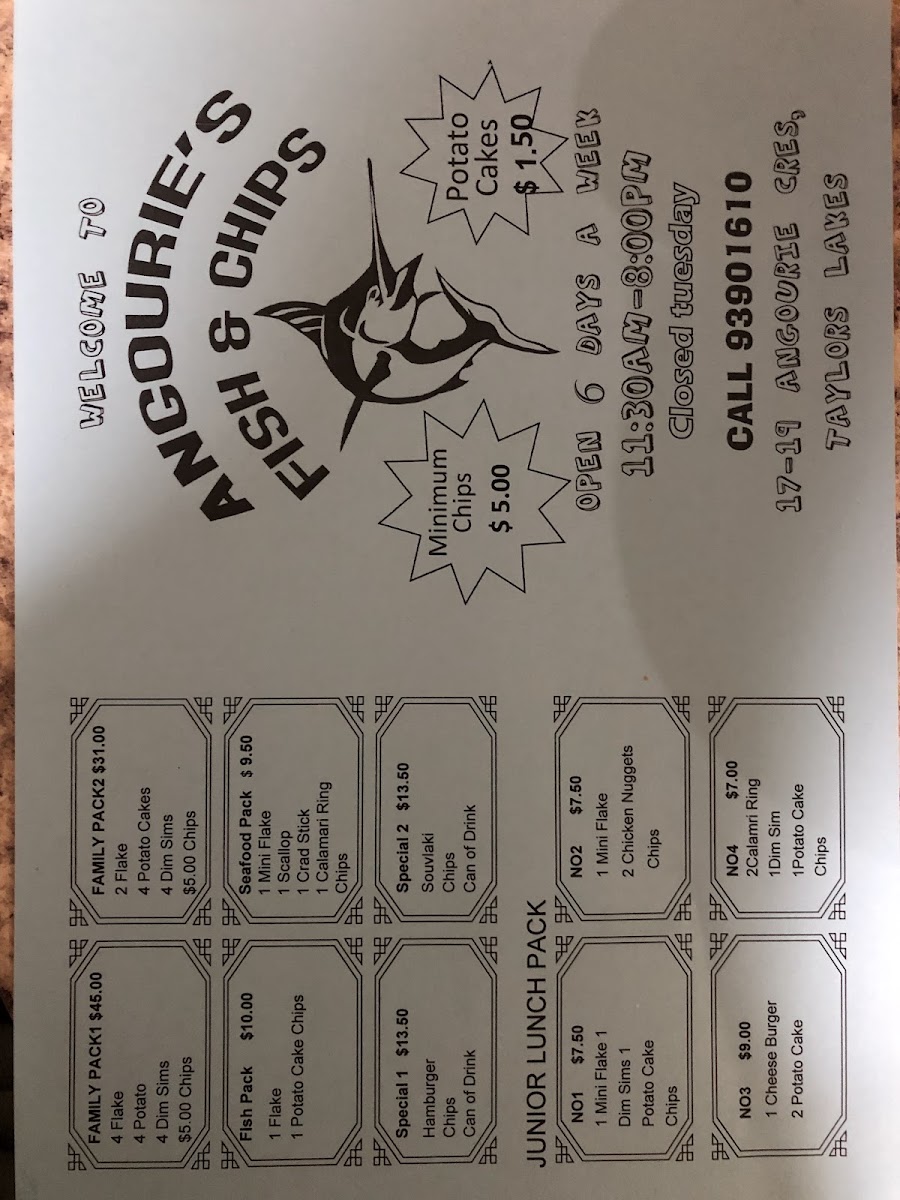 FAMILY PACK1 $45.00
4 Flake
4 Potato
4 Dim Sims
$5.00 Chips
FAMILY PACK2 $31.00
2 Flake
4 Potato Cakes
4 Dim Sims
$5.00 Chips
Fish Pack $10.00
1 Flake
1 Potato Cake Chips
Seafood Pack $ 9.50
1 Mini Flake
1 Scallop
1 Crad Stick
1 Calamari Ring
Chips
Special 1 $13.50
Hamburger
Chips
Can of Drink
Special 2 $13.50
Souvlaki
Chips
Can of Drink
JUNIOR LUNCH PACK
NO1 $7.50
1 Mini Flake 1
Dim Sims 1
Potato Cake
Chips
NO2 $7.50
1 Mini Flake
2 Chicken Nuggets
Chips
NO3 $9.00
1 Cheese Burger
2 Potato Cake
NO4 $7.00
2Calamri Ring
1Dim Sim
1Potato Cake
Chips
WELCOME TO
ANGOURIE'S
FISH & CHIPS
Minimum
Chips
$ 5.00
Potato
Cakes
$ 1.50
OPEN 6 DAYS A WEEK
11:30AM-8:00PM
Closed tuesday
CALL 93901610
17-19 ANGOURIE CRES,
TAYLORS LAKES